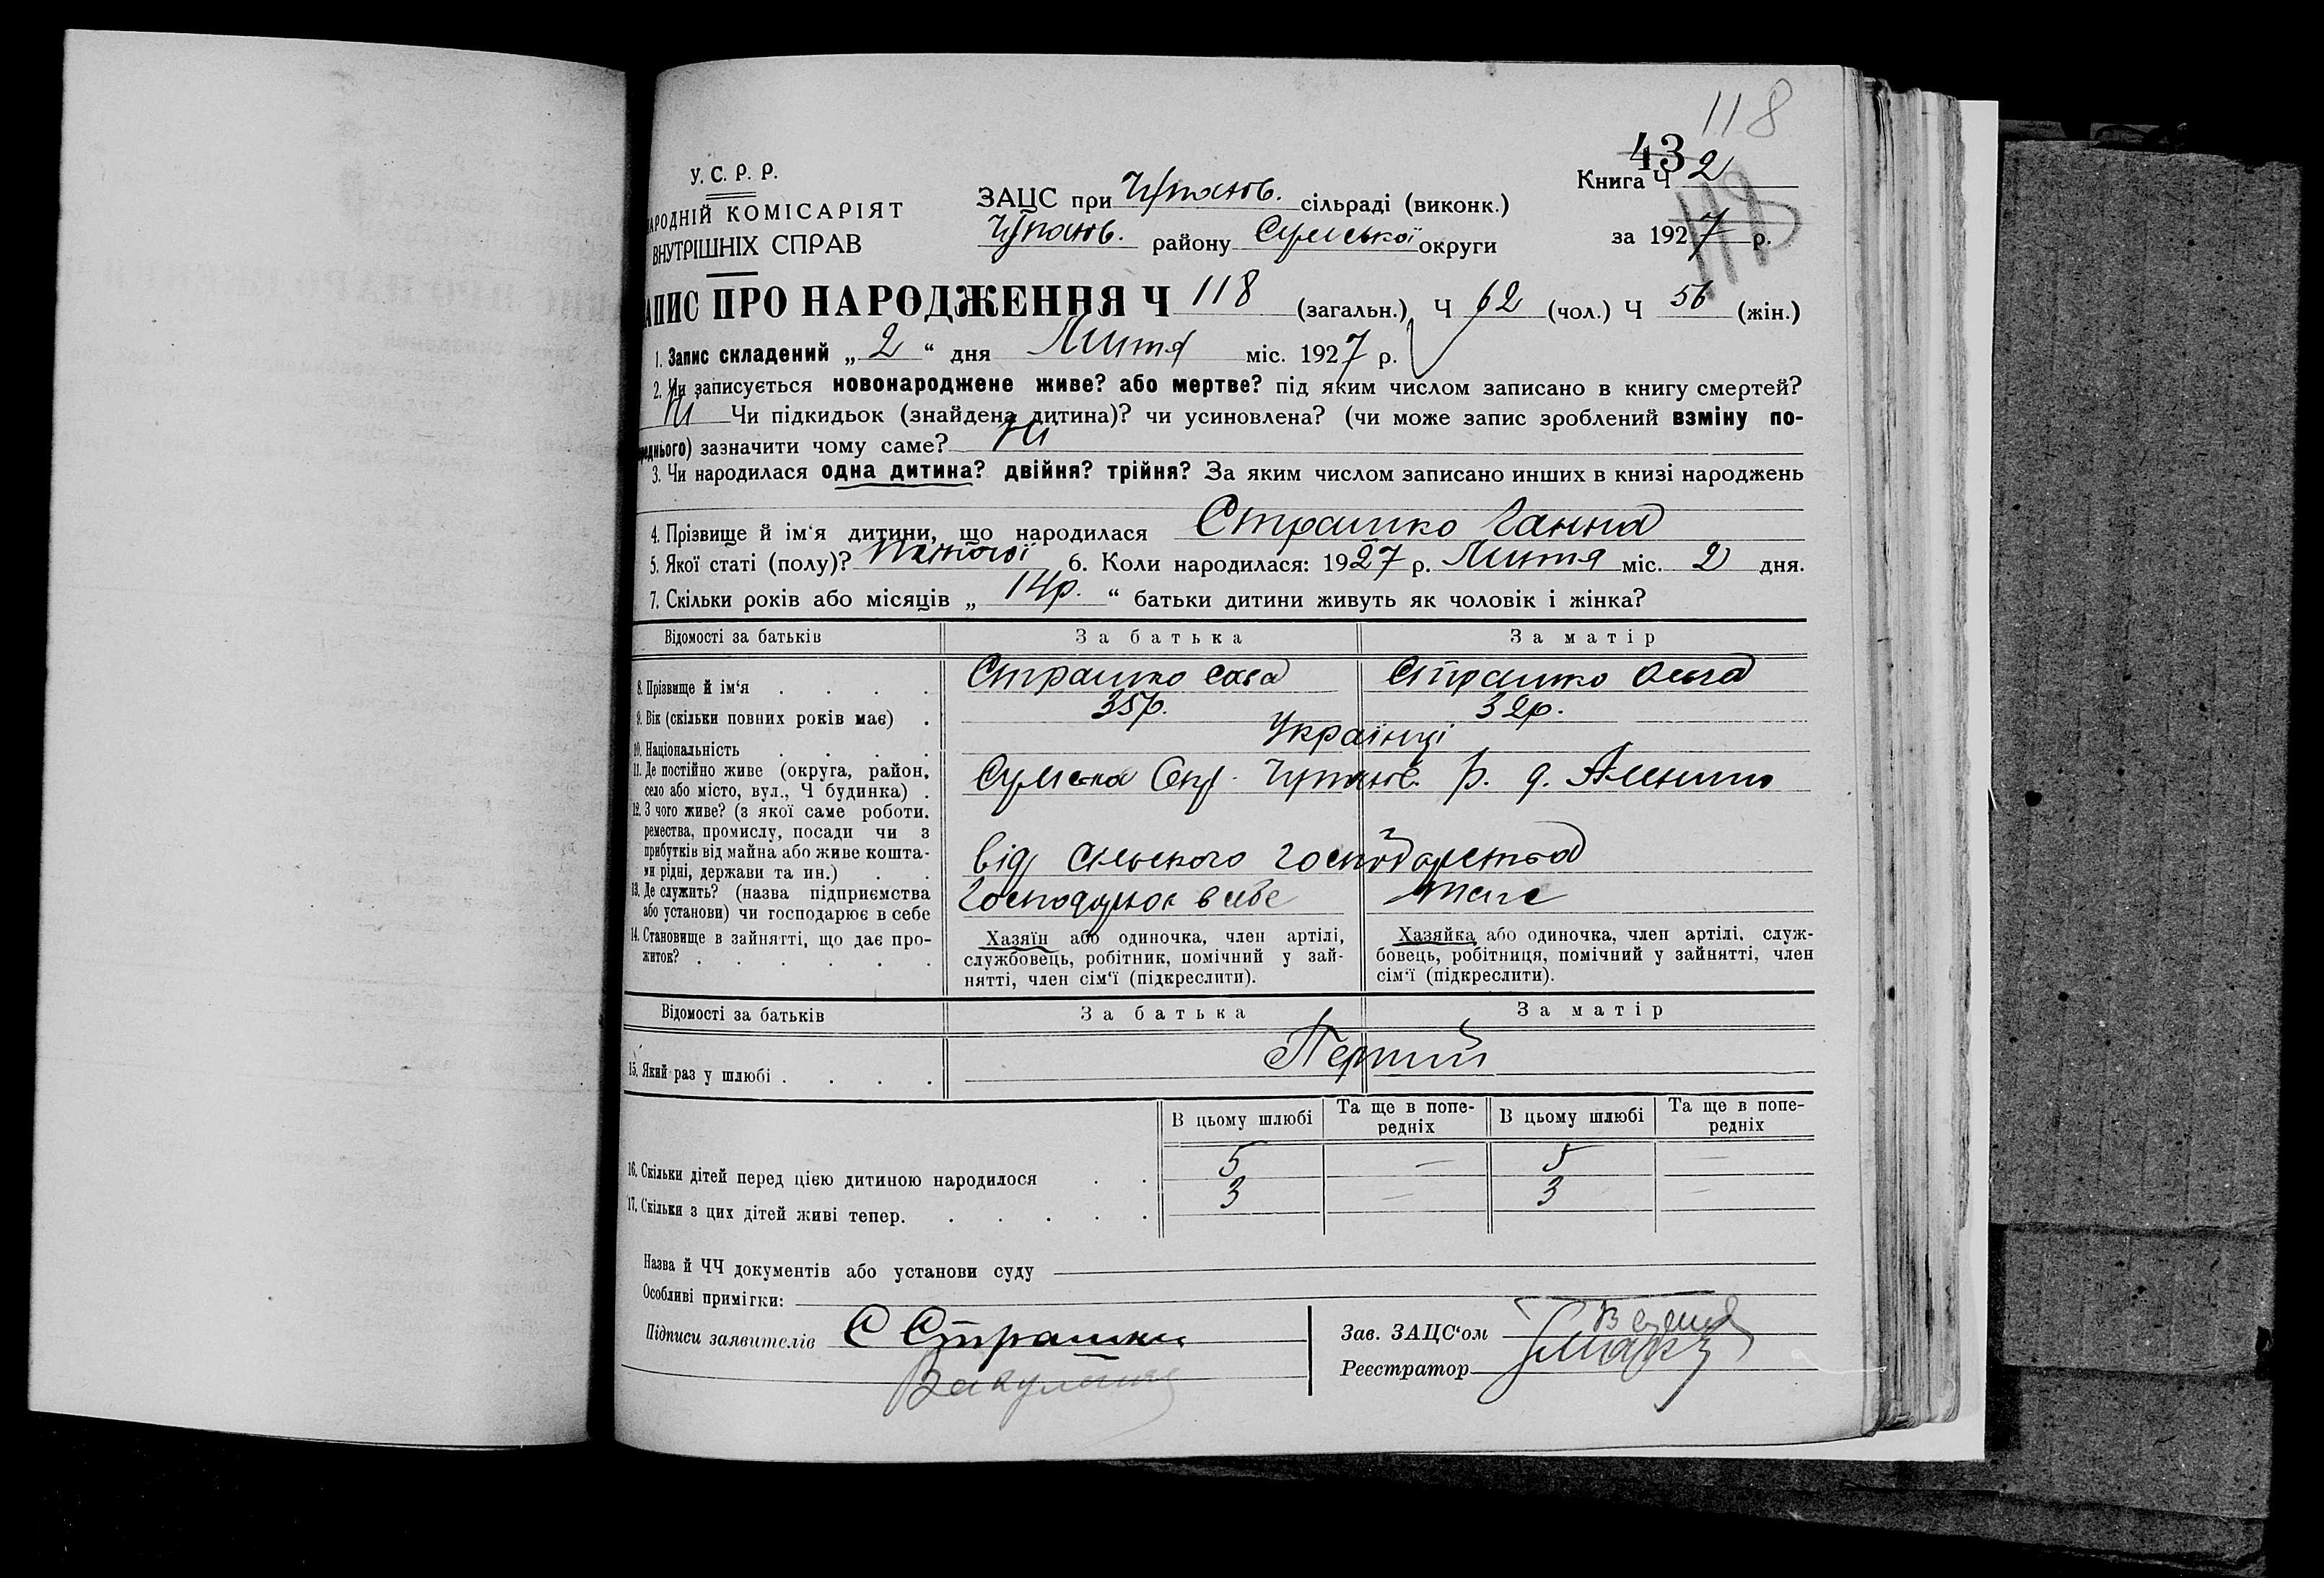 118
43
Книга Ч 2
118
за 1927 р.
У. С. Р. Р.
НАРОДНІЙ КОМІСАРІЯТ
ВНУТРІШНІХ СПРАВ
ЗАЦС при сільраді (виконк.)
району Сумської округи
ЗАПИС ПРО НАРОДЖЕННЯ Ч 118 (загальн.) Ч 62 (чол.) Ч 56 (жін.)
1. Запис складений „ 2 “ дня Липня міс. 1927 р.
2. Чи записується новонароджене живе? або мертве? під яким числом записано в книгу смертей?
Ні Чи підкидьок (знайдена дитина)? чи усиновлена? (чи може запис зроблений взміну по-
реднього) зазначити чому саме? Ні
3. Чи народилася одна дитина? двійня? трійня? За яким числом записано инших в книзі народжень
4. Прізвище й ім‘я дитини, що народилася Страшко Ганна
5. Якої статі (полу)? жіночої 6. Коли народилася: 1927 р. Липня міс. 2 дня.
7. Скільки років або місяців „ 14р. “ батьки дитини живуть як чоловік і жінка?
Відомості за батьків За батька За матір
8. Прізвище й ім‘я . . . . Страшко Сава Страшко Ольга
9. Вік (скільки повних років має) . 35р. 32р.
10. Національність . . . . Українці
11. Де постійно живе (округа, район,
село або місто, вул., Ч будинка) . Сумська Окр. р.
12. З чого живе? (з якої саме роботи.
ремества, промислу, посади чи з
прибутків від майна або живе кошта-
ми рідні, держави та ин.) . . від сільського господарства
13. Де служить? (назва підприємства
або установи) чи господарює в себе Господарює в себе теж
14. Становище в зайнятті, що дає про-
житок? . . . . . .
Хазяїн або одиночка, член артілі,
службовець, робітник, помічний у зай-
нятті, член сім‘ї (підкреслити).
Хазяйка або одиночка, член артілі, служ-
бовець, робітниця, помічний у зайнятті, член
сім‘ї (підкреслити).
Відомості за батьків За батька За матір
15. Який раз у шлюбі . . . . Перший
В цьому шлюбі Та ще в попе-
редніх В цьому шлюбі Та ще в попе-
редніх
16. Скільки дітей перед цією дитиною народилося . . 5 — 5 —
17. Скільки з цих дітей живі тепер. . . . . . 3 — 3 —
Назва й ЧЧ документів або установи суду
Особливі примітки:
Підписи заявителів С Страшко
Зав. ЗАЦС‘ом
Реєстратор